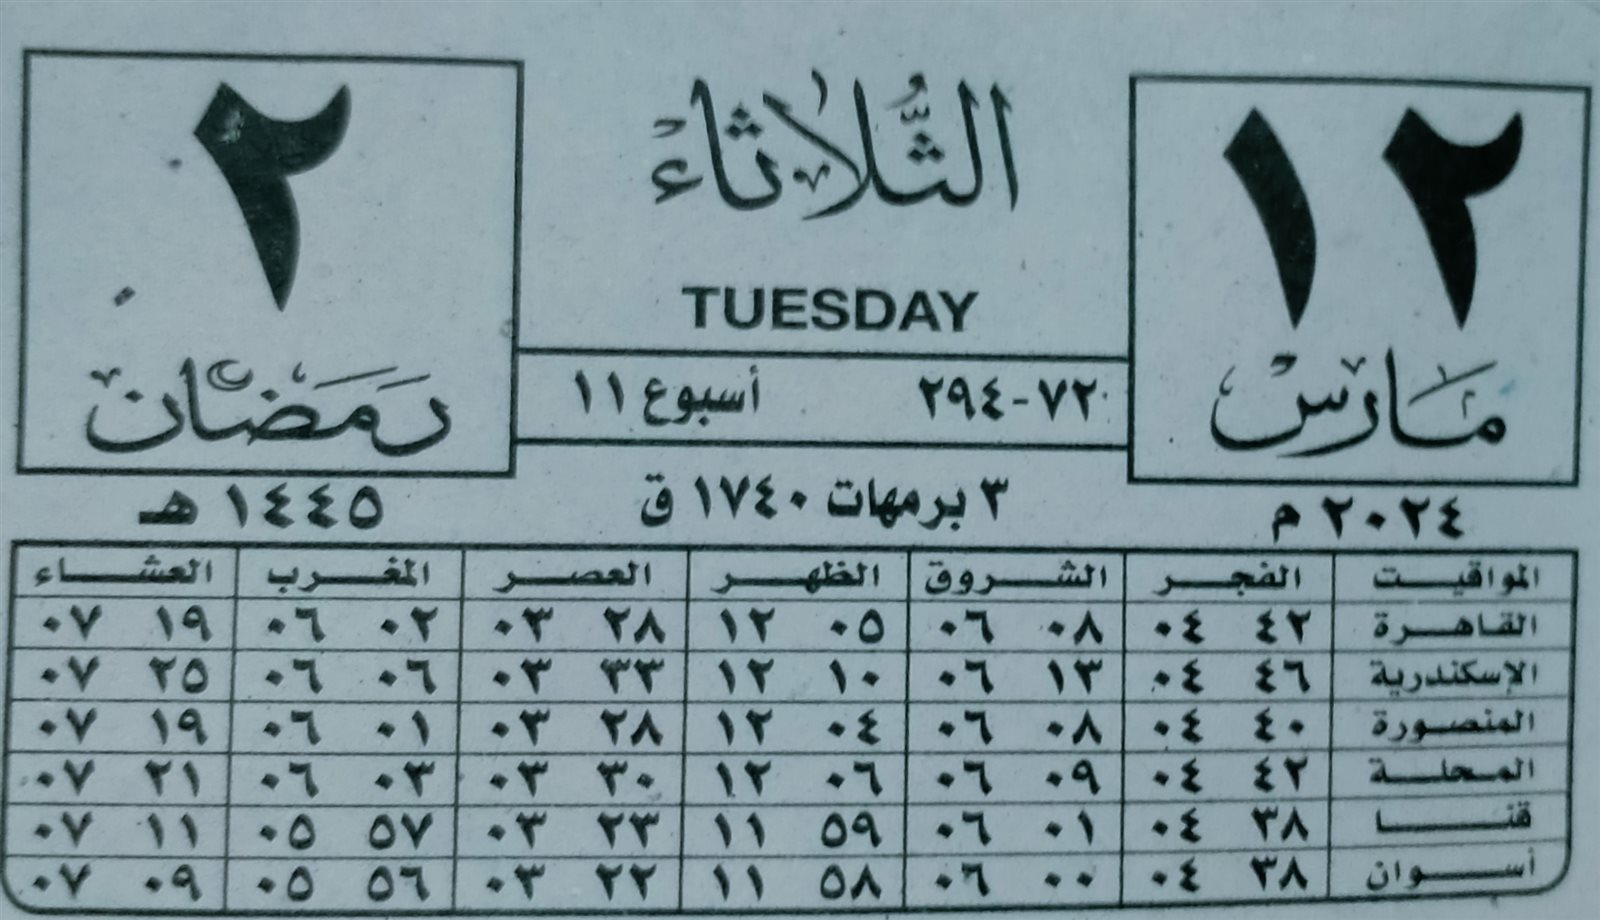 ١٢
مارس
٢٠٢٤ م
الثُّلاثاء
TUESDAY
٧٢-٢٩٤ أسبوع ١١
٣ برمهات ١٧٤٠ ق
٢
رمضان
١٤٤٥ هـ
المواقيت الفجر الشروق الظهر العصر المغرب العشاء
القاهرة ٤٢ ٠٤ ٠٨ ٠٦ ٠٥ ١٢ ٢٨ ٠٣ ٠٢ ٠٦ ١٩ ٠٧
الإسكندرية ٤٦ ٠٤ ١٣ ٠٦ ١٠ ١٢ ٣٣ ٠٣ ٠٦ ٠٦ ٢٥ ٠٧
المنصورة ٤٠ ٠٤ ٠٨ ٠٦ ٠٤ ١٢ ٢٨ ٠٣ ٠١ ٠٦ ١٩ ٠٧
المحلة ٤٢ ٠٤ ٠٩ ٠٦ ٠٦ ١٢ ٣٠ ٠٣ ٠٣ ٠٦ ٢١ ٠٧
قنا ٣٨ ٠٤ ٠١ ٠٦ ٥٩ ١١ ٢٣ ٠٣ ٥٧ ٠٥ ١١ ٠٧
أسوان ٣٨ ٠٤ ٠٠ ٠٦ ٥٨ ١١ ٢٢ ٠٣ ٥٦ ٠٥ ٠٩ ٠٧